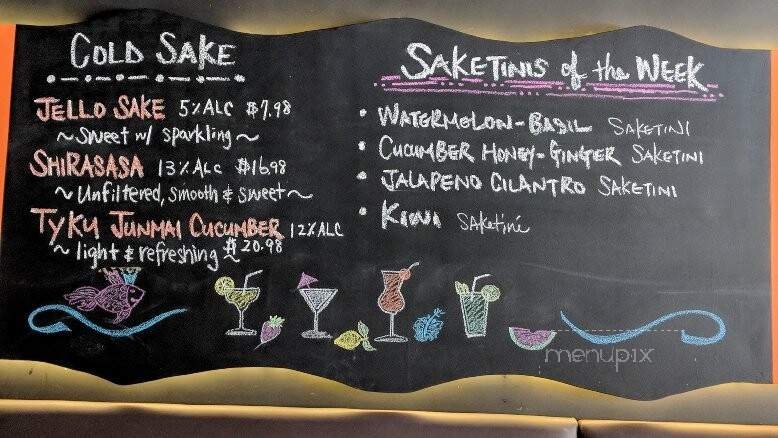 COLD SAKE
JELLO SAKE 5% ALC $7.98
~ Sweet w/ sparkling ~
SHIRASASA 13% ALC $16.98
~ Unfiltered, smooth & sweet ~
TYKU JUNMAI CUCUMBER 12% ALC
~ light & refreshing ~ $20.98
SAKETINIS of the WEEK
• WATERMELON-BASIL SAKETINI
• CUCUMBER HONEY-GINGER SAKETINI
• JALAPENO CILANTRO SAKETINI
• KIWI SAKETINI
menupix